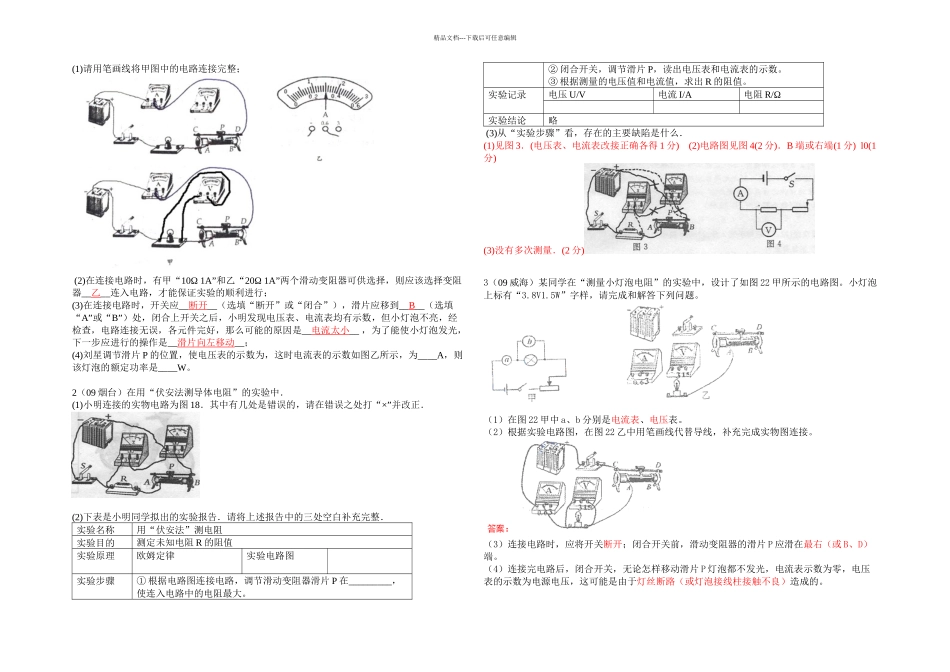 精品文档---下载后可任意编辑
(1)请用笔画线将甲图中的电路连接完整;
乙
甲
(2)在连接电路时，有甲“10Ω 1A”和乙“20Ω 1A”两个滑动变阻器可供选择，则应该选择变阻
器__乙__连入电路，才能保证实验的顺利进行;
(3)在连接电路时，开关应__断开__（选填“断开”或“闭合”），滑片应移到__B__（选填
“A”或“B”）处，闭合上开关之后，小明发现电压表、电流表均有示数，但小灯泡不亮，经
检查，电路连接无误，各元件完好，那么可能的原因是__电流太小__，为了能使小灯泡发光，
下一步应进行的操作是__滑片向左移动__;
(4)刘星调节滑片 P 的位置，使电压表的示数为，这时电流表的示数如图乙所示，为____A，则
该灯泡的额定功率是____W。
2（09 烟台）在用“伏安法测导体电阻”的实验中．
(1)小明连接的实物电路为图 18．其中有几处是错误的，请在错误之处打“×”并改正．
(2)下表是小明同学拟出的实验报告．请将上述报告中的三处空白补充完整．
实验名称 用“伏安法”测电阻
实验目的 测定未知电阻 R 的阻值
实验原理 欧姆定律 实验电路图
实验步骤 ① 根据电路图连接电路，调节滑动变阻器滑片 P 在________，
使连入电路中的电阻最大。
② 闭合开关，调节滑片 P，读出电压表和电流表的示数。
③ 根据测量的电压值和电流值，求出 R 的阻值。
实验记录 电压 U/V 电流 I/A 电阻 R/Ω
实验结论 略
(3)从“实验步骤”看，存在的主要缺陷是什么．
(1)见图 3．(电压表、电流表改接正确各得 1 分) (2)电路图见图 4(2 分)．B 端或右端(1 分) l0(1
分)
图 3
图 4
(3)没有多次测量．(2 分)
3（09 威海）某同学在“测量小灯泡电阻”的实验中，设计了如图 22 甲所示的电路图。小灯泡
上标有“3.8V1.5W”字样，请完成和解答下列问题。
甲
乙
（1）在图 22 甲中 a、b 分别是电流表、电压表。
（2）根据实验电路图，在图 22 乙中用笔画线代替导线，补充完成实物图连接。
答案：
（3）连接电路时，应将开关断开；闭合开关前，滑动变阻器的滑片 P 应滑在最右（或 B、D）
端。
（4）连接完电路后，闭合开关，无论怎样移动滑片 P 灯泡都不发光，电流表示数为零，电压
表的示数为电源电压，这可能是由于灯丝断路（或灯泡接线柱接触不良）造成的。